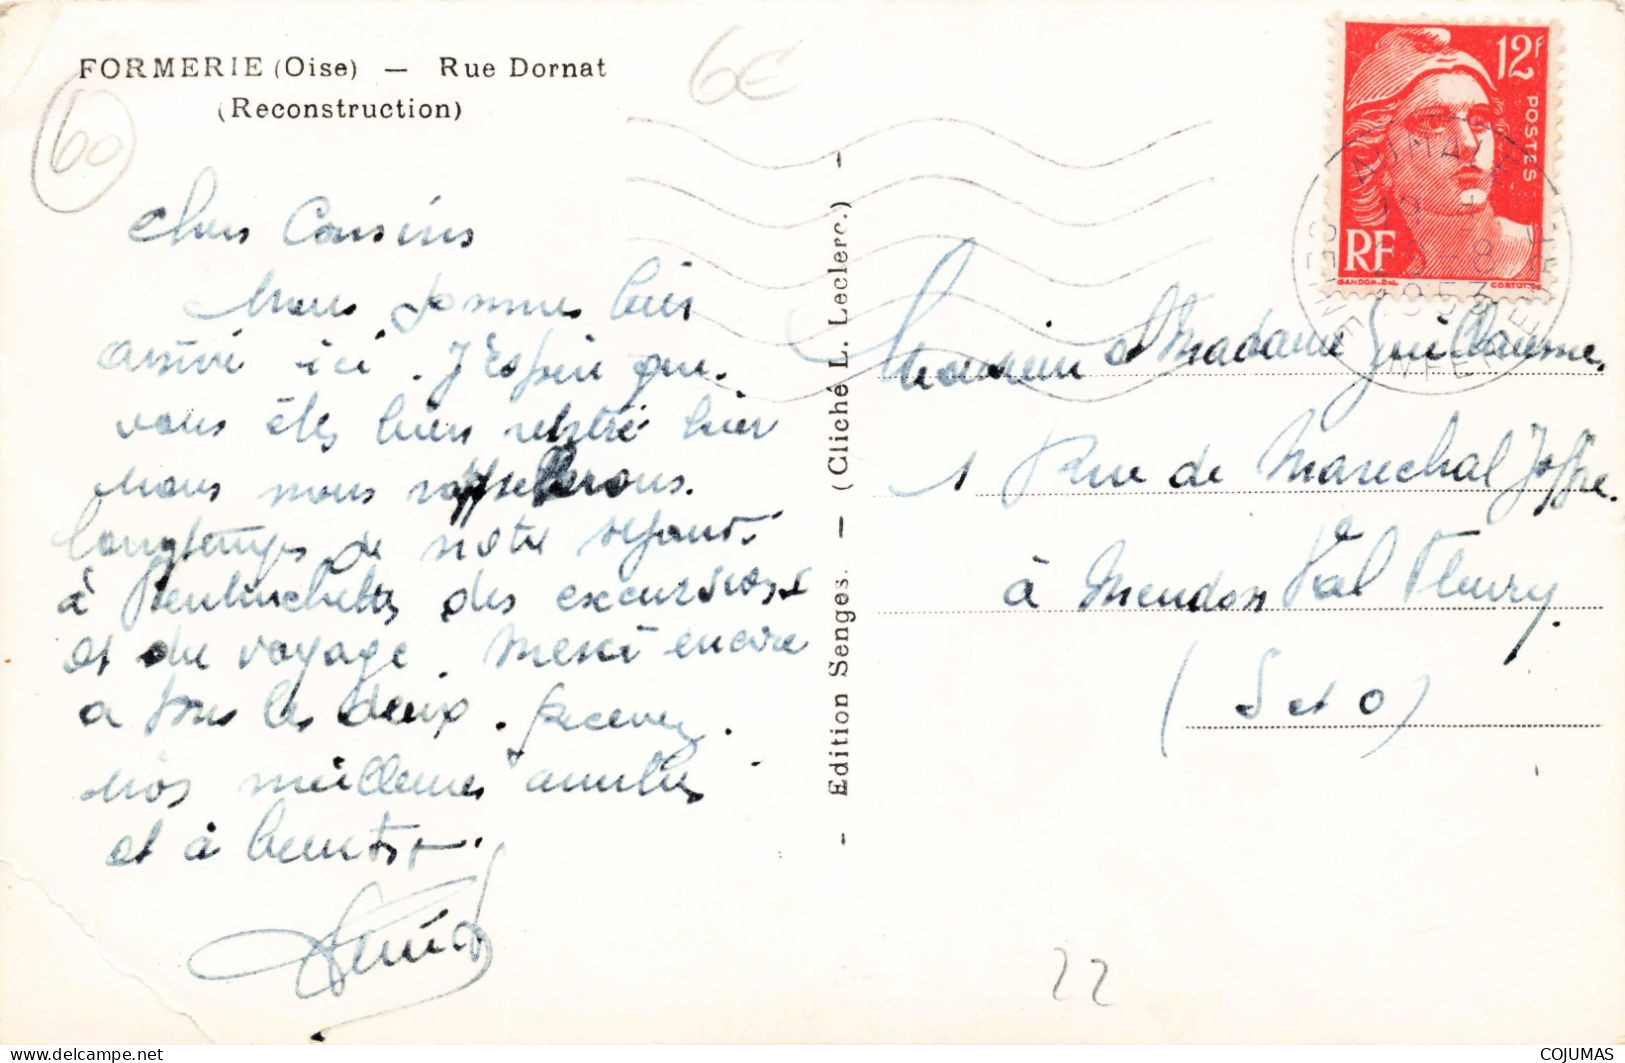 FORMERIE (Oise) — Rue Dornat
(Reconstruction)
6€
60
Chers Cousins
Nous sommes bien
arrivé ici. J'Espère que
vous êtes bien rentré hier
Nous nous rappellerons
longtemps de notre sejour
à des excursions
et du voyage. Merci encore
a tous les deux. Recevez
nos meilleures amitiés
et à bientot.
- Edition Senges. — (Cliché L. Leclerc.) -
12F
POSTES
RF
GANDON.Del. CORTOT.Sc
AUMALE
1953
SEINE INFERIEURE
Monsieur et Madame Guillaume,
1 Rue de Marechal Joffre.
à Meudon Val Fleury.
(S et O)
22
COJUMAS
delcampe.net